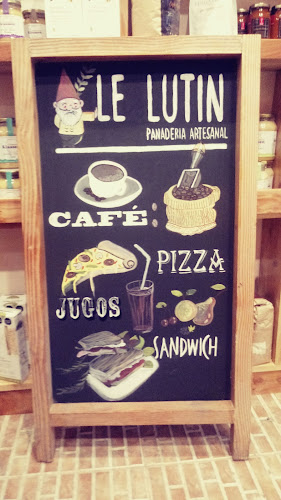 LE LUTIN
PANADERIA ARTESANAL
CAFÉ
PIZZA
JUGOS
SANDWICH